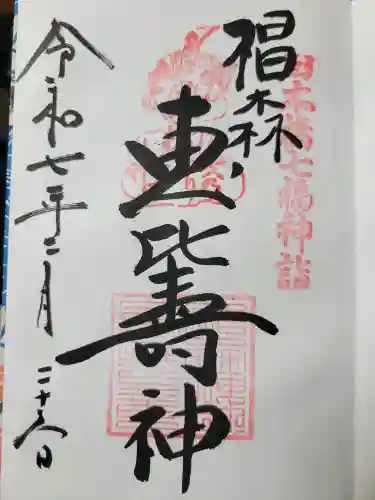 日本橋七福神詣
椙森
恵比寿神
令和七年二月二十六日